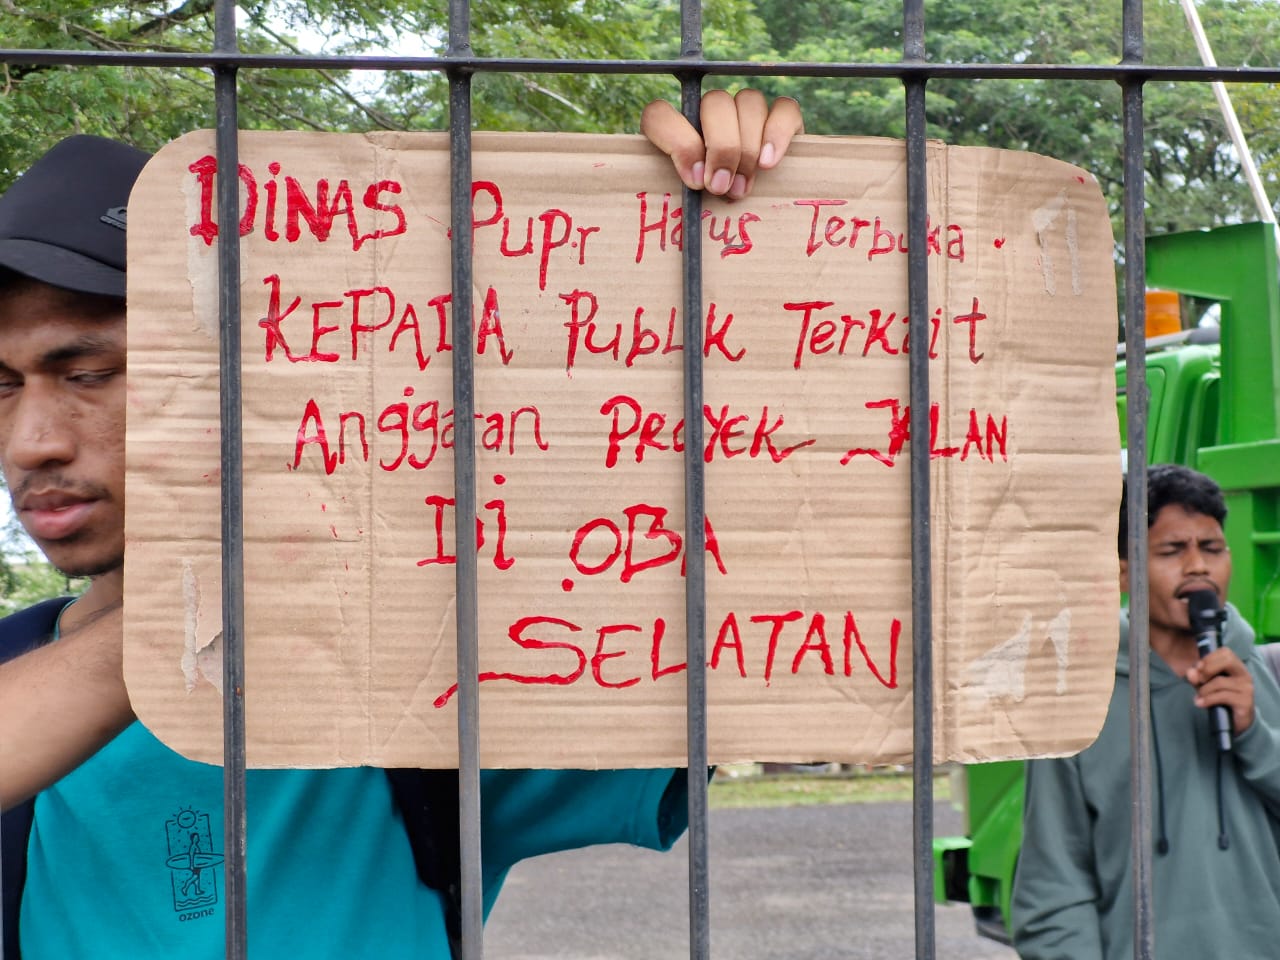 DiNAS Pupr Harus Terbuka.
KEPADA Publik Terkait
Anggaran PROYEK JALAN
Di OBA
SELATAN
ozone